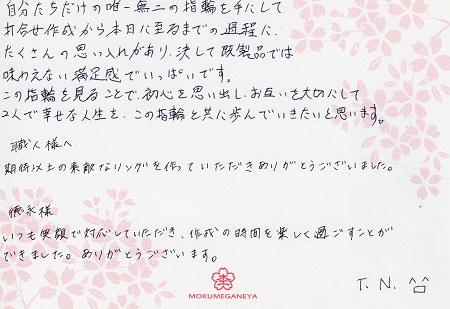 自分たちだけの唯一無二の指輪を手にして
打合せ作成から本日に至るまでの過程に、
たくさんの思い入れがあり、決して既製品では
味わえない満足感でいっぱいです。
この指輪を見ることで、初心を思い出し、お互いを大切にして
2人で幸せな人生を、この指輪と共に歩んでいきたいと思います。
職人様へ
期待以上の素敵なリングを作っていただきありがとうございました。
徳永様
いつも笑顔で対応していただき、作成の時間を楽しく過ごすことが
できました。ありがとうございます。
T. N.
MOKUMEGANEYA